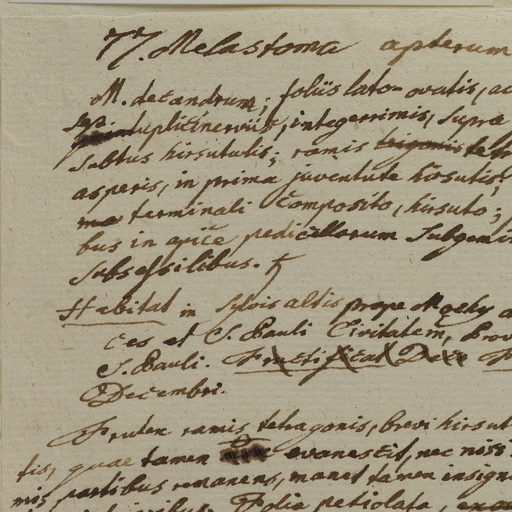 77. Melastoma apterum
M. decandrum; foliis lato-ovatis, ac
Sep tuplinerviis, integerrimis, supra
subtus hirsutulis; ramis trigonis tetr
asperis, in prima juventute hirsutis;
terminali composito, hirsuto;
bus in apice pedicellorum subgemin
subsessilibus. ♄
Habitat in sylvis altis prope Mgehy a
ces et S. Pauli Civitatem, Prov
S. Pauli. Fructificat Dece F
Decembri.
Frutex ramis tetragonis, brevi hirsut
tis, quae tamen evanescit, nec nisi
mis partibus remanens, manet tamen insign
Folia petiolata,